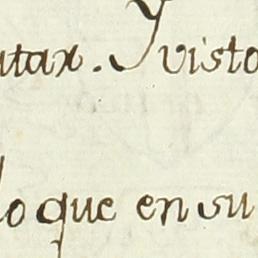 atar. Y visto
lo que en su